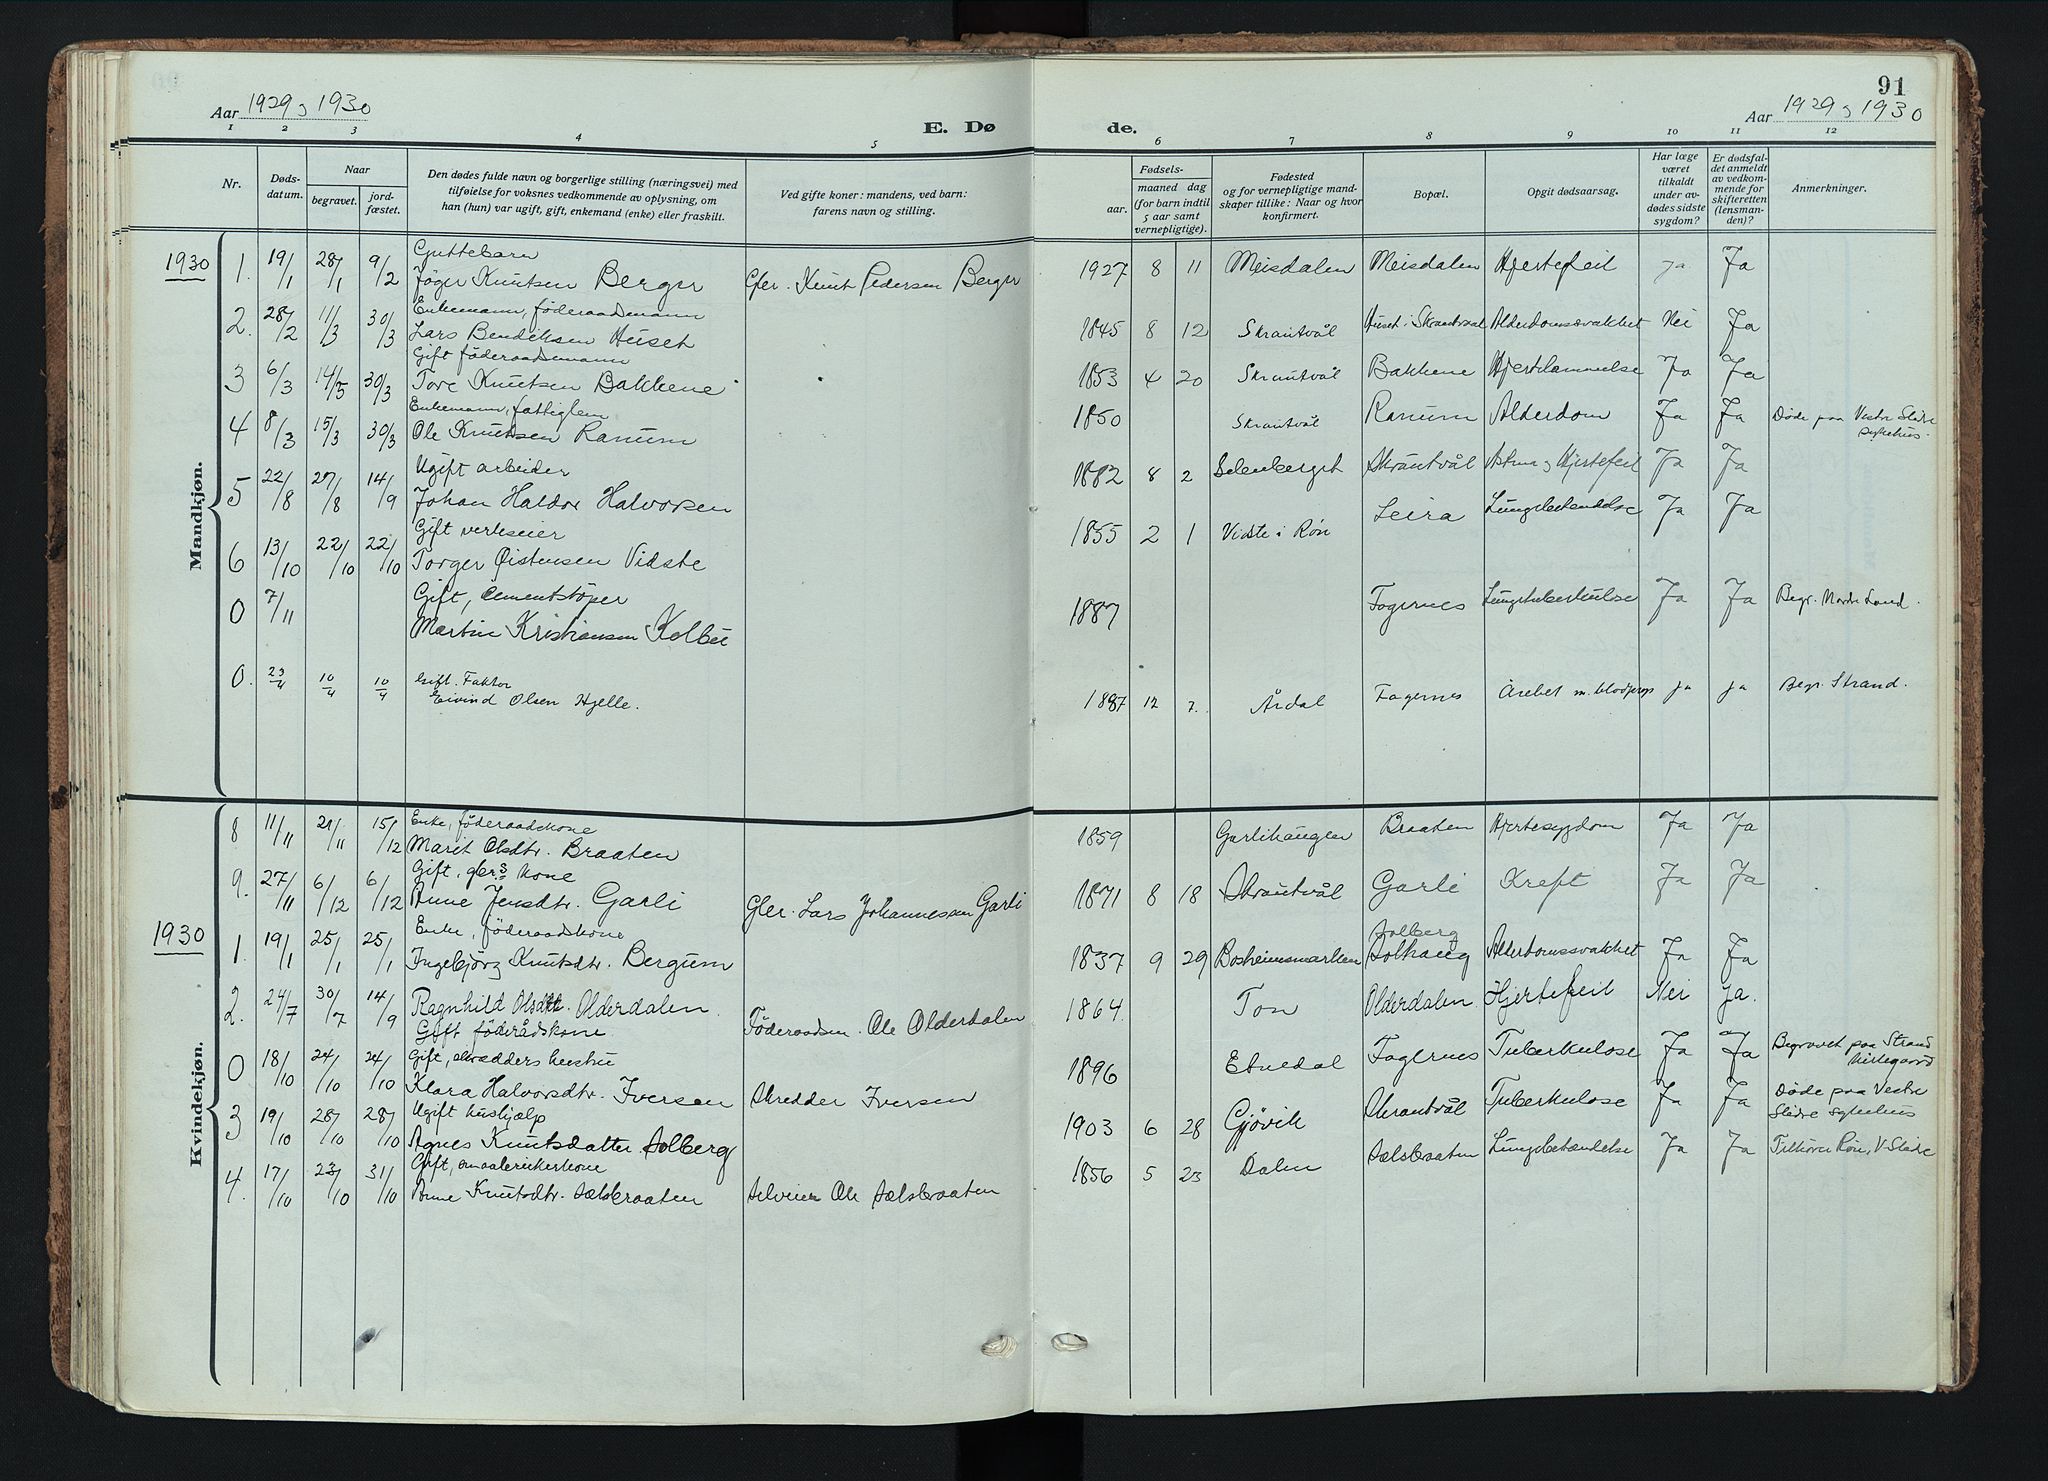 91
Aar 1929 og 1930
Aar 1929 og 1930
E. Dø
de.
1 2 3 4 5 6 7 8 9 10 11 12
Nr.
Døds-
datum.
Naar
begravet.
jord-
fæstet.
Den dødes fulde navn og borgerlige stilling (næringsvei) med
tilføielse for voksnes vedkommende av oplysning, om
han (hun) var ugift, gift, enkemand (enke) eller fraskilt.
Ved gifte koner: mandens, ved barn:
farens navn og stilling.
Fødsels-
aar.
maaned dag
(for barn indtil
5 aar samt
vernepligtige).
Fødested
og for vernepligtige mand-
skaper tillike: Naar og hvor
konfirmert.
Bopæl.
Opgit dødsaarsag.
Har læge
været
tilkaldt
under av-
dødes sidste
sygdom?
Er dødsfal-
det anmeldt
av vedkom-
mende for
skifteretten
(lensman-
den)?
Anmerkninger.
Mandkjøn.
1930
1. 19/1 28/1 9/2 Guttebarn
Knutsen Berger Gbr. Knut Pedersen Berger 1927 8 11 Meisdalen Meisdalen Hjertefeil ja Ja
2. 28/2 11/3 30/3 Enkemann, föderaadsmann
Lars Bendiksen Huset 1845 8 12 Skrautvål Huset i Skrautvaal Alderdomssvakhet Nei Ja
3 6/3 14/3 30/3 Gift föderaadsmann
Tore Knutsen Bakkene 1853 4 20 Skrautvål Bakkene Hjertelammelse Ja Ja
4 8/3 15/3 30/3 Enkemann, fattiglem
Ole Knutsen Ranum 1850 Skrautvål Ranum Alderdom Ja Ja Döde paa Vestre Slidre
sykehus.
5 22/8 27/8 14/9 Ugift arbeider
Johan Haldor Halvorsen 1882 8 2 Selenberget Skrautvål Astma og Hjertefeil Ja Ja
6 13/10 22/10 22/10 Gift verkseier
Torger Öistensen Vidste 1855 2 1 Vidste i Røn Leira Lungebetendelse Ja Ja
0 7/11 Gift, Cementstöper
Martin Kristiansen Kolbu 1887 Fagernes Lungetuberkulose Ja Ja Begr. Nordre Land.
0. 23/4 10/4 10/4 Gift. Faktor
Eivind Olsen Hjelle. 1887 12 7. Årdal Fagernes Årebet m. blodprop ja ja Begr. Strand.
Kvindekjøn.
8 11/11 21/11 15/12 Enke, föderaadskone
Marit Olsdtr. Braaten 1859 Garlihaugen Braaten Hjertesygdom Ja Ja
9. 27/11 6/12 6/12 Gift, gbr.s kone
Anne Jensdtr. Garli Gbr. Lars Johannessen Garli 1871 8 18 Skrautvål Garli Kreft Ja Ja
1930
1. 19/1 25/1 25/1 Enke, föderaadskone
Ingebjörg Knutsdtr. Bergum 1837 9 29 Bosheimsmarken Solberg
Solhaug Alderdomssvakhet Ja Ja
2. 24/7 30/7 14/9 Ragnhild Olsdtr. Olderdalen
Gift föderådskone. Föderaadsm. Ole Olderdalen 1864 Ton Olderdalen Hjertefeil Nei ja.
0 18/10 24/10 24/10 Gift, skredders hustru
Klara Halvorsdtr. Iversen Skredder Iversen 1896 Etnedal Fagernes Tuberkulose Ja Ja Begravet paa Strand
kirkegaard
3 19/10 28/10 28/10 Ugift hushjælp
Agnes Knutsdatter Solberg 1903 6 28 Gjøvik Skrautvål Tuberkulose Ja Ja Döde paa Vestre
Slidre sykehus
4. 17/10 23/10 31/10 Gift, smaabrukerkone
Anne Knutsdtr. Sælsbraaten Selveier Ole Sælsbraaten 1856 5 23 Dalen Sælsbraaten Lungebetændelse Ja Ja Røn, V. Slidre